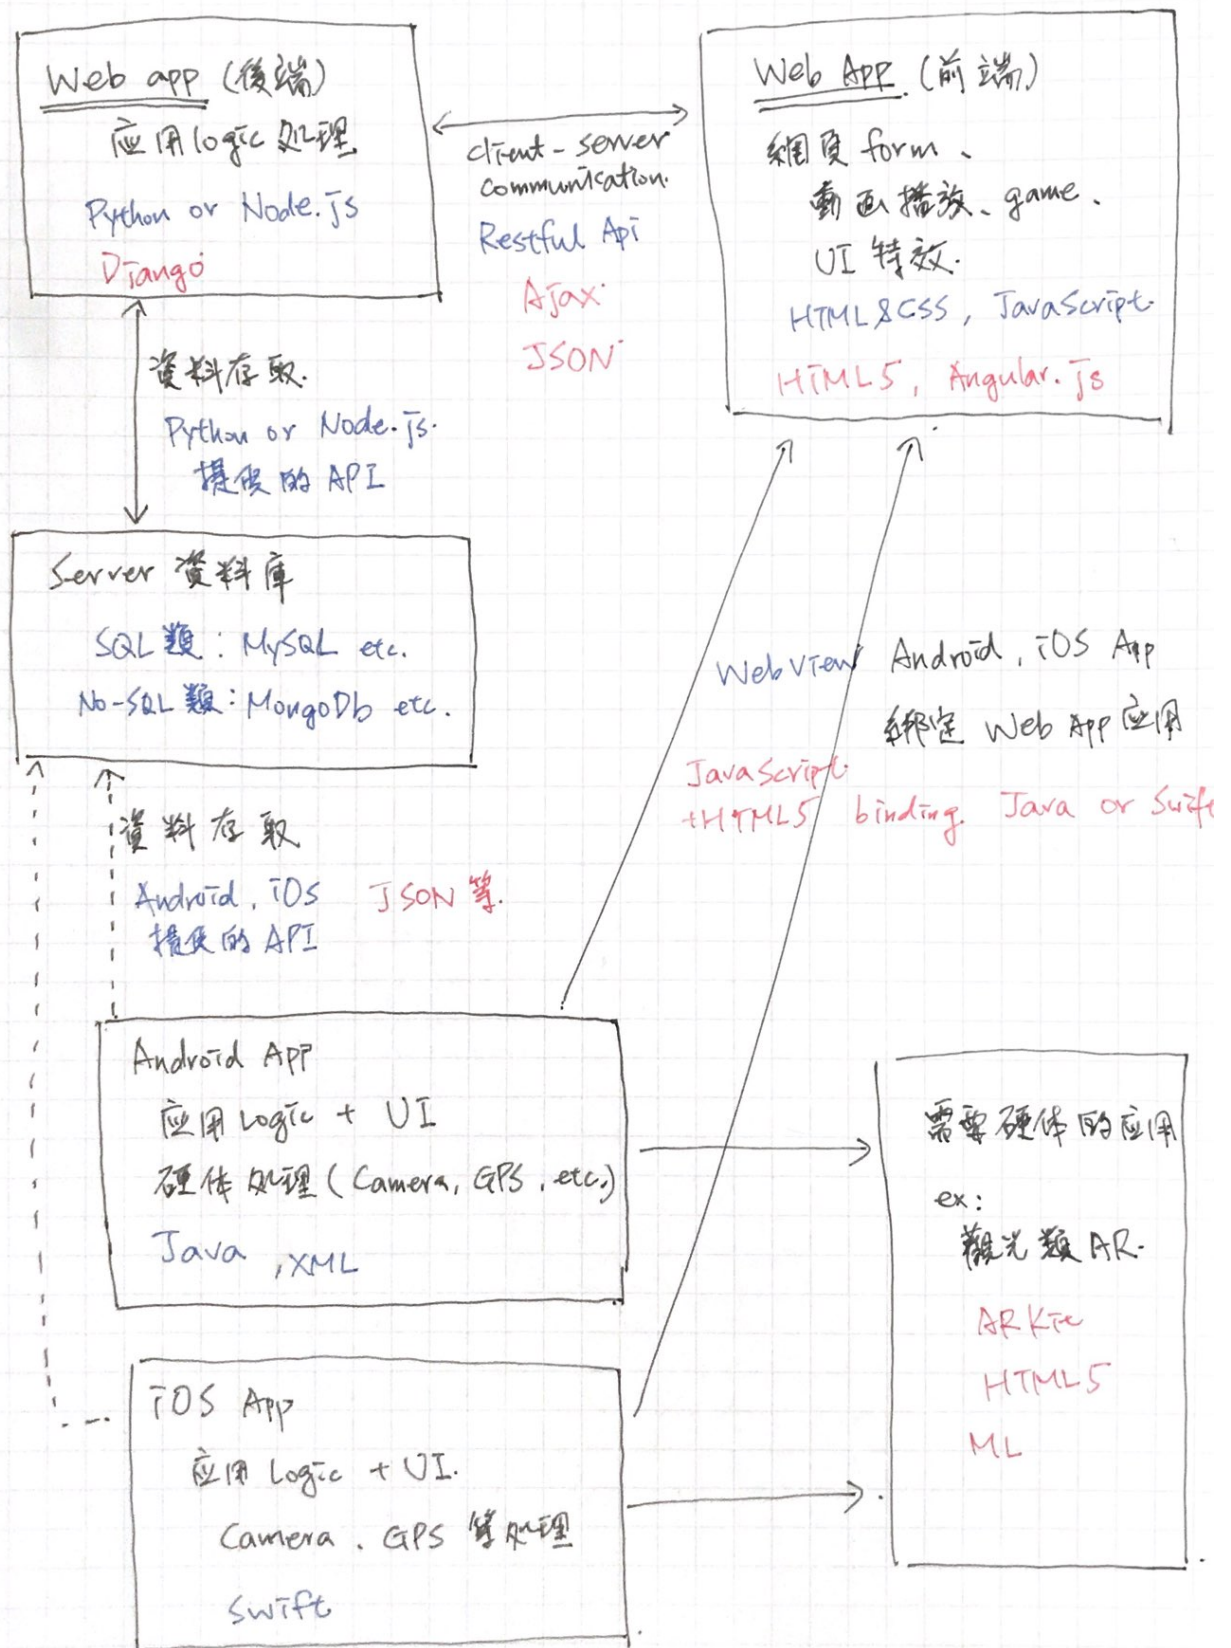 Web app (後端)
应用logic 处理
Python or Node.js
Django
client-server
communication.
Restful Api
Ajax
JSON
Web App (前端)
網頁 form、
動画播放、game、
UI 特效.
HTML&CSS, JavaScript
HTML5, Angular.js
資料存取.
Python or Node.js.
提供的 API
Server 資料庫
SQL 類: MySQL etc.
No-SQL 類: MongoDb etc.
WebView
Android, iOS App
綁定 Web App 应用
JavaScript
+HTML5 binding. Java or Swift
資料存取
Android, iOS
提供的 API
JSON 等.
Android App
应用 Logic + UI
硬体处理 (Camera, GPS, etc.)
Java, XML
需要硬体的应用
ex:
觀光類AR.
ARKit
HTML5
ML
iOS App
应用 Logic + UI.
Camera、GPS 等处理
Swift